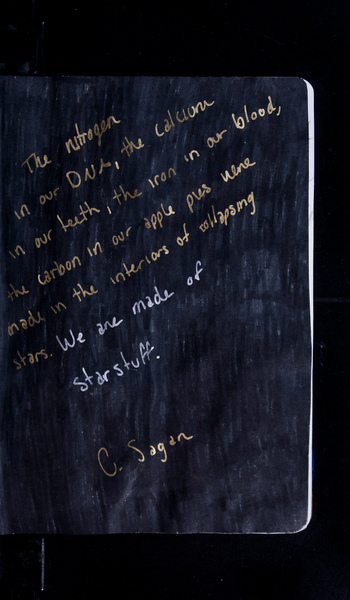 The nitrogen
in our DNA, the calcium
in our teeth, the iron in our blood,
the carbon in our apple pies were
made in the interiors of collapsing
stars. We are made of
starstuff.
C. Sagan